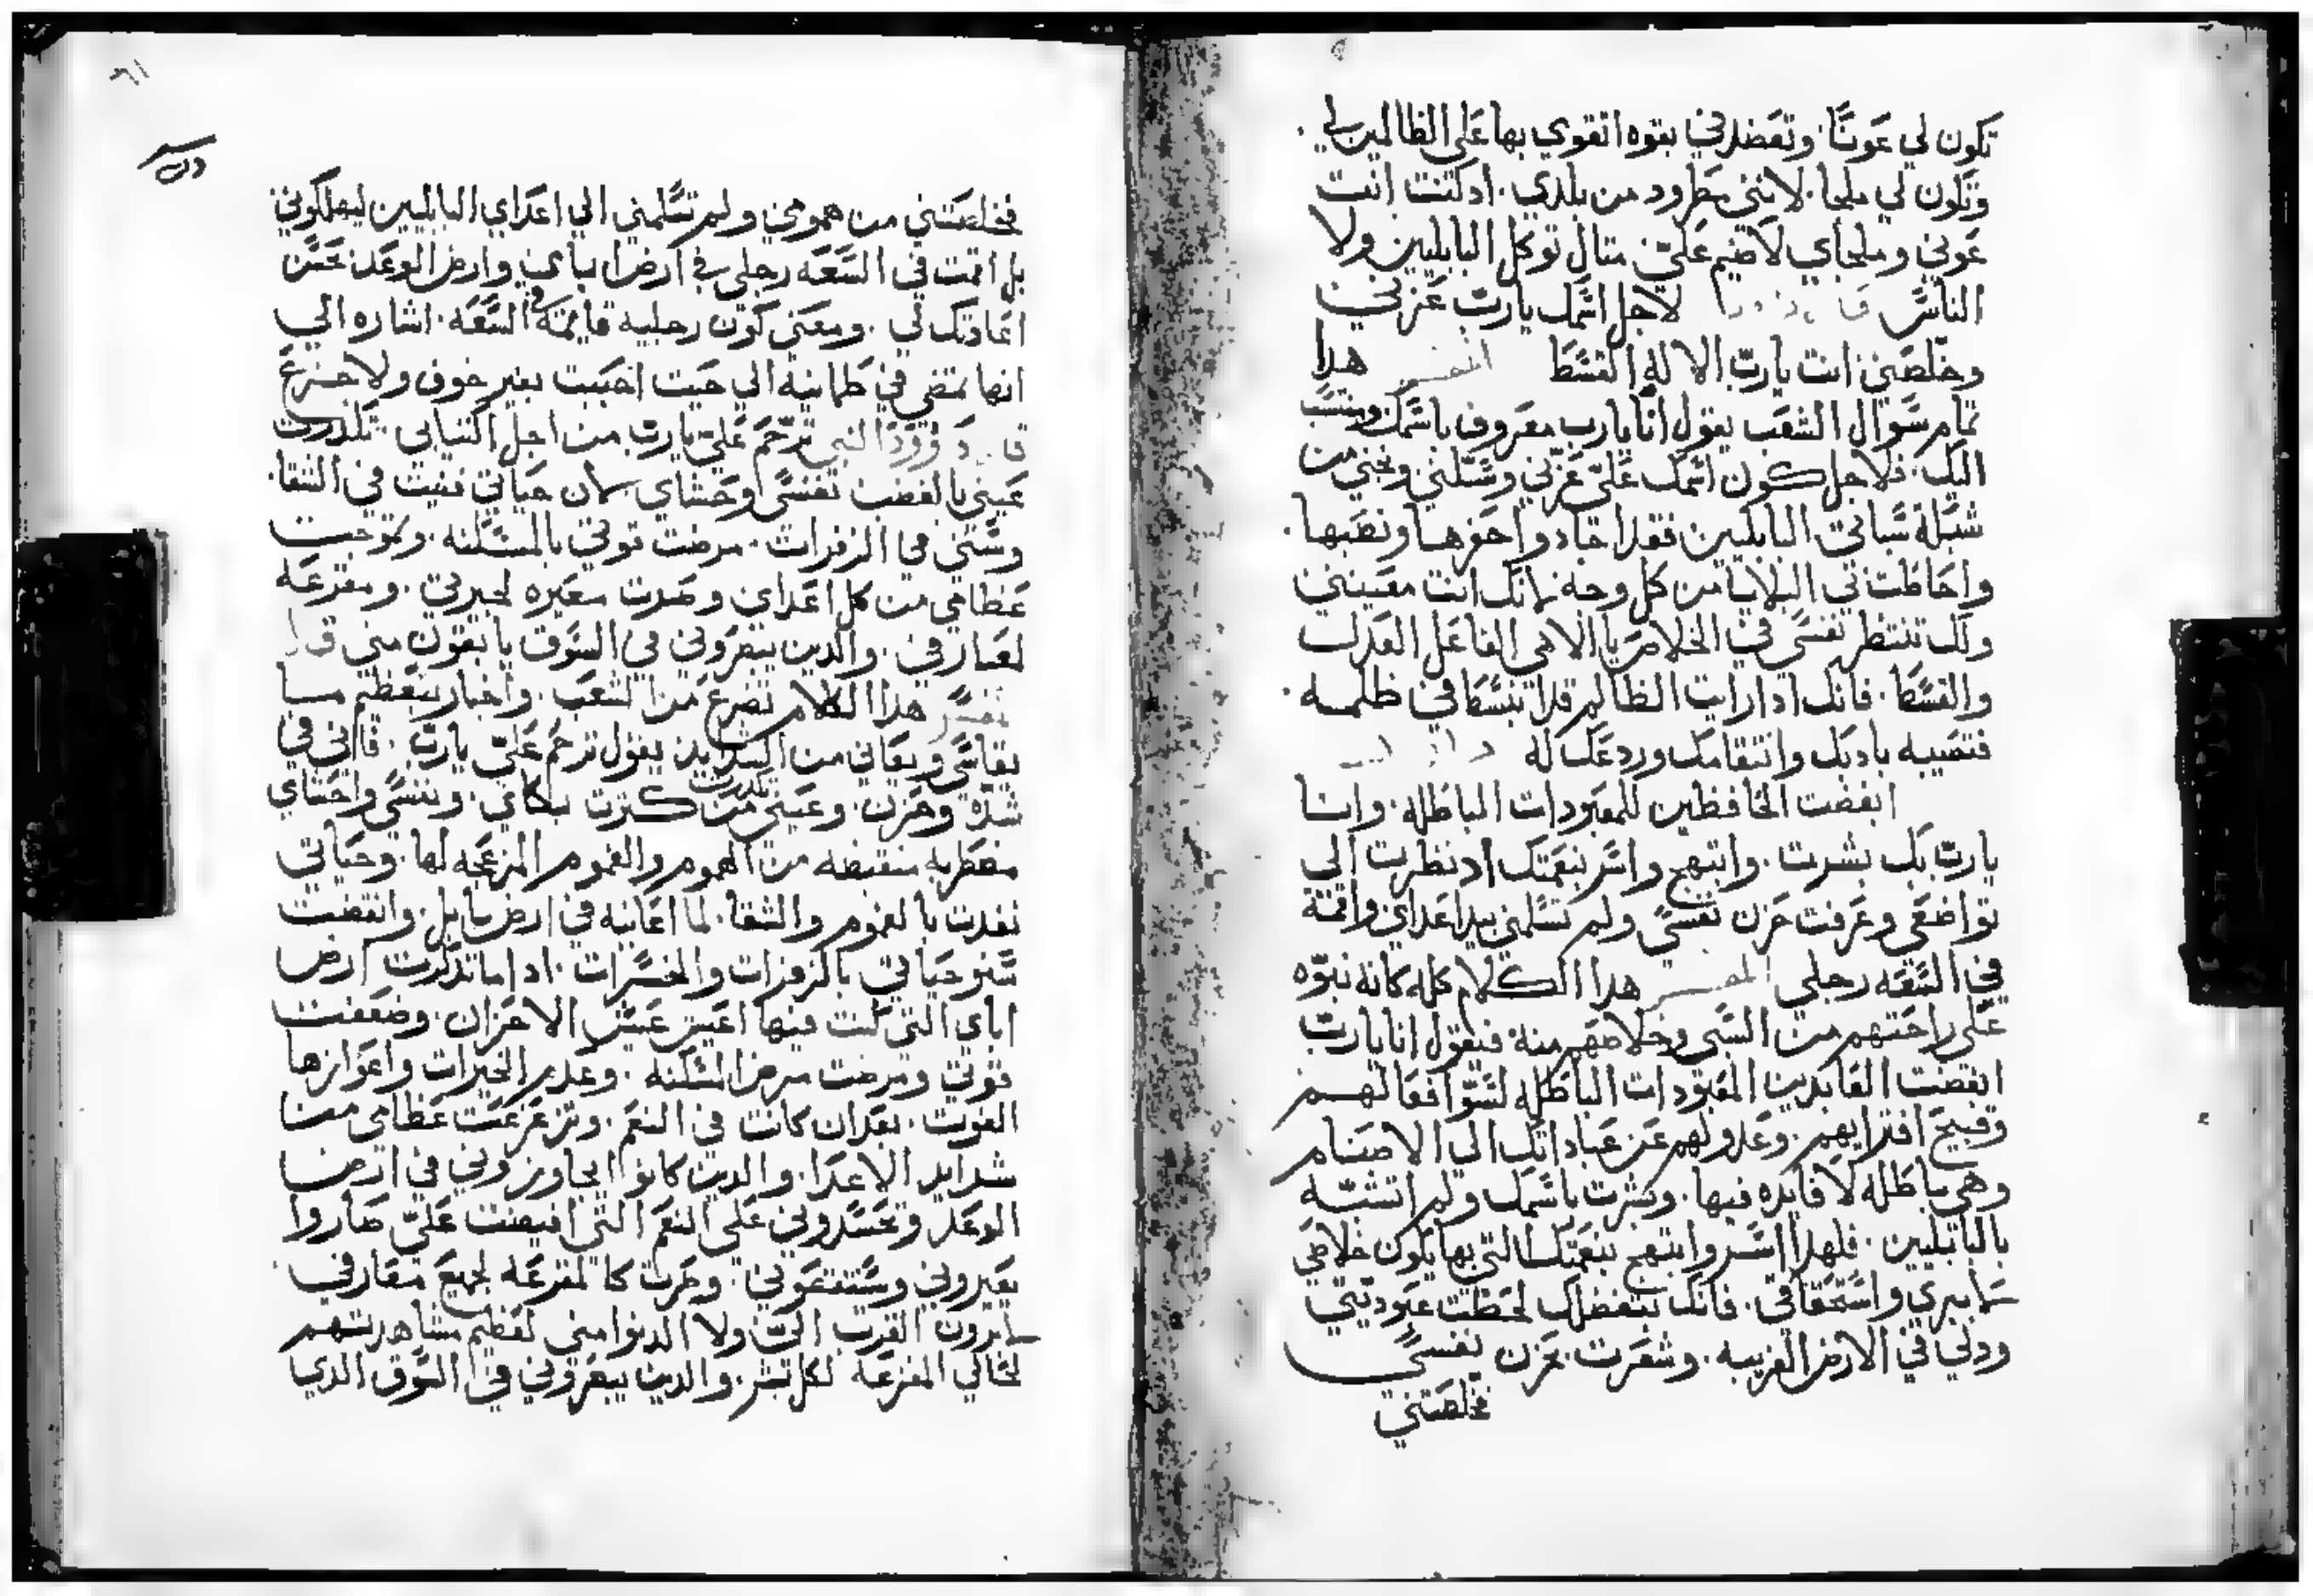 تكون لي عونًا. وتعضدني بقوه اتقوي بها علي الظالمين لي.
وتكون لي ملجا. لانني مطرود من بلدي. ادكنت انت
عوني وملجاي لا ضيم عليّ متال توكل البابليين ولا
الناس لاجل اسمك يارب عزني
وخلصني انت يارب الاله القسط المفسر هدا
تمام سوال الشعب يقول انا يارب معروف باسمك ومنتسب
اليك. فلاجل كون اسمك عليّ عزني وسلني ونجني من
شبكة سباتي البابليين فقد اجادوا حفرها ونصبها.
واحاطت بي البلايا من كل وجه لانك انت معيني
ولك تنتظر نفسي في الخلاص يا الاهي الفاعل العدل
والقسط. فانك ادا رايت الظالم قد انبسط في ظلمه.
فتصيبه بادبك وانتقامك وردعك له
ابغضت الحافظين للمعبودات الباطله. وانا
يارب بك بشرت. وابتهج واسر بنعمتك اد نظرت الي
تواضعي وعرفت حزن نفسي ولم تسلمني بيد اعداي واقمة
في السعه رجلي المفسر هدا الكلام كله كانه نبوّه
علي راحتهم من السبي وخلاصهم منه. فيقول انا يارب
ابغضت العابدين المعبودات الباطله لسوّ افعالهم
وقبيح افترايهم. وعدولهم عن عباداتك الي الاصنام
وهي باطله لا فايده فيها. وبشرت باسمك ولم اتشبّه
بالبابليين. فلهدا اسر وابتهج بنعمتك التي بها يكون خلاصي
لا ببري واستحقاقي. فانك بتفضلك لحظت عبوديتي
ودلي في الارض الغريبه. وشعرت بحزن نفسي
فخلصتني
فخلصتني من همومي ولم تسلمني الي اعداي البابليين ليهلكوني
بل اقمت في السعه رجلي في ارض ابايي وارض الوعد عند
اعادتك لي. ومعني كون رجليه قايمة في السعه. اشاره الي
انها تمضي في طمانينه الي حيت احببت بغير خوف ولا جزع
قال داوود النبي ترحم عليّ يارب من اجل اكتيابي تكدرت
عيني بالغضب نفسي وحشاي لان حياتي فنيت في الشقا.
وسني في الزفرات. مرضت قوتي بالمسكنه. وتوجت
عظامي من كل اعداي وصرت معيره لجيرتي. ومفزعه
لمعارفي. والدين يبصروني في السوق يابقون مني قال
المفسر هدا الكلام تضرع من الشعب. واخبار بعظيم ما
يقاسي ويعاني من الشدايد يقول ترحم عليّ يارب. فاني في
شدّه وحزن. وعيني تكدرت من كترت بكاي. ونفسي واحشاي
مضطربه منقبضه من الهموم والغموم المزعجه لها. وحياتي
نفدت بالغموم والشقا. لما اعانيه في ارض بابل. وانقضت
سنو حياتي بالزفرات والحسرات. ادا ما تدكرت ارض
اباي التي كنت فيها اعيش عيش الاحزان. وضعفت
قوتي ومرضت مرض المسكنه. وعدم الخيرات واعوازها
القوت. بعد ان كانت في النعم. وتزعزعت عظامي من
شدايد الاعدا. والدين كانوا يجاوزوني في ارض
الوعد وتحسدوني علي النعم التي افيضت عليّ صاروا
يعيروني ويستتنعوني. وصرت كالمفزعه لجميع معارفي.
لا يرون القرب اليّ ولا الدنوا مني لعظيم مشاهدتهم
لحالي المفزعه لكل بشر. والدين يبصروني في السوق الدي